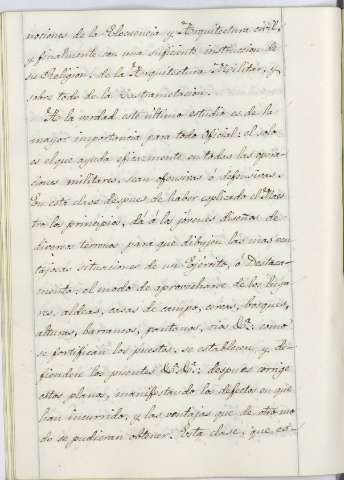 nociones de la Elocuencia y Arquitectura civil,
y finalmente con una suficiente instruccion de
su Religion, de la Arquitectura Militar, y
sobre todo de la Castrametacion.
A la verdad este ultimo estudio es de la
mayor importancia para todo Oficial: el solo
es el que ayuda eficazmente en todas las opera-
ciones militares, sean ofensivas ó defensivas.
En esta clase despues de haber explicado el Maes-
tro los principios, dá á los jovenes diseños de
diversos terrenos para que dibujen las mas ven-
tajosas situaciones de un Egército, ó Destaca-
mento: el modo de aprovecharse de los luga-
res, aldeas, casas de campo, cercas, bosques,
alturas, barrancos, pantanos, rios &c: como
se fortifican los puestos, se establecen y de-
fienden los puentes &c. &c.: despues corrige
estos planos, manifestando los defectos en que
han incurrido, y las ventajas que de otro mo-
do se pudieran obtener. Esta clase, que es-